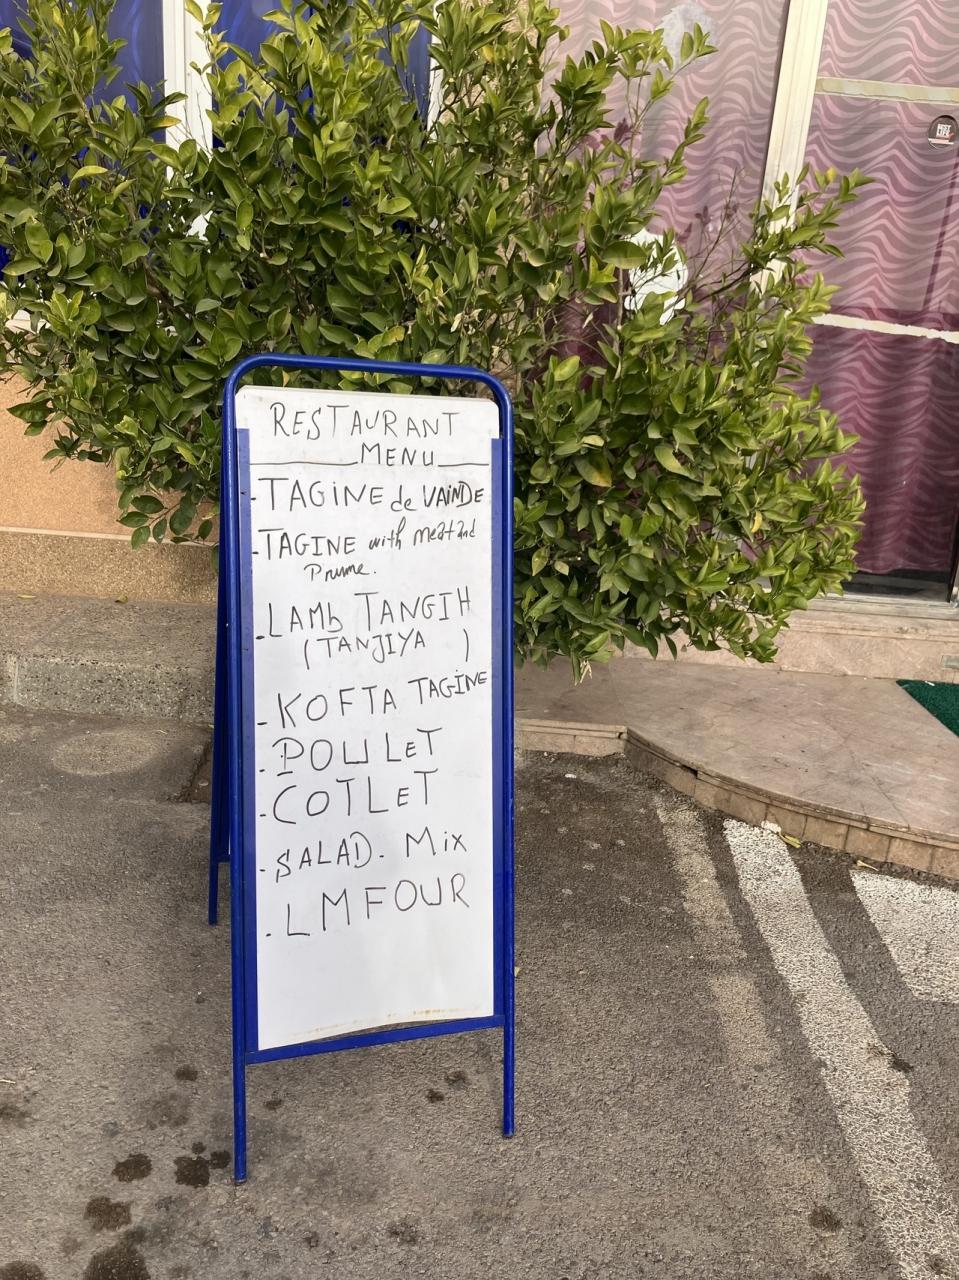 RESTAURANT
MENU
-TAGINE de VAINDE
-TAGINE with meat and
Prume.
-LAMb TANGIH
(TANJIYA )
-KOFTA TAGINE
. POULLET
. COTLET
. SALAD. Mix
. LMFOUR